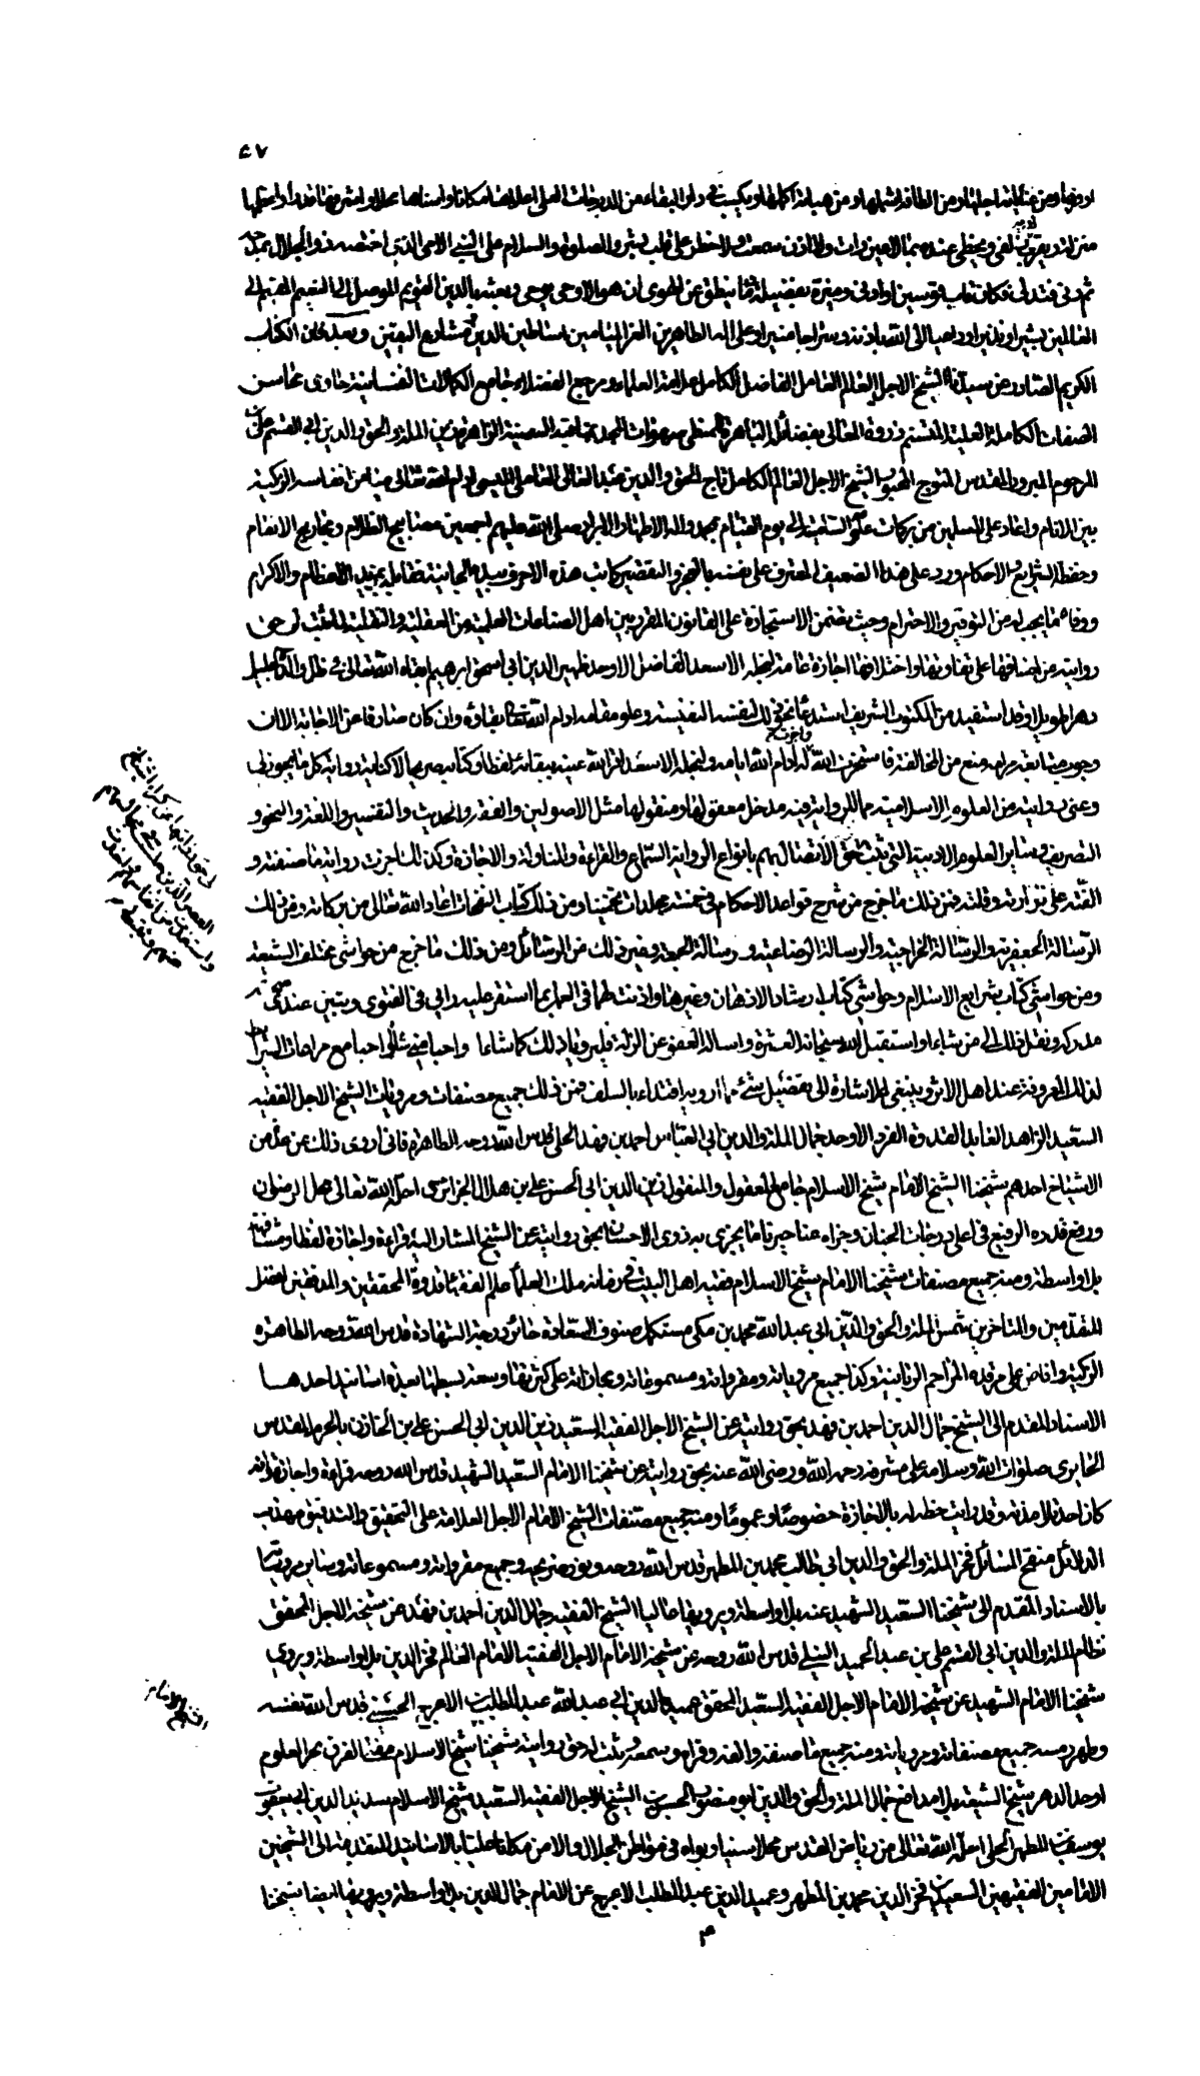 ٤٧
ثم دنى فتدلى فكان قاب قوسين او ادنى وميزه بفضيلة وما ينطق عن الهوى ان هو الا وحى يوحى وبعثه بالدين القويم الموصل الى النعيم المقيم الى
العالمين بشيرا ونذيرا وداعيا الى الله باذنه وسراجا منيرا وعلى اله الطاهرين الغر الميامين اساطين الدين ومشارع اليقين وبعد فان الكتاب
الكريم الصادر عن سيدنا الشيخ الاجل العالم العامل الفاضل الكامل علامة العلماء ومرجع الفضلاء جامع الكمالات النفسانية حاوى محاسن
الصفات الكاملة العلية المتسنم ذروة المعالى بفضائله الباهرة الممتطى صهوات المجد بمناقبه السنية الزاهرة زين الملة والحق والدين ابى القسم على بن
المرحوم المبرور المقدس المتوج المحبور الشيخ الاجل العالم الكامل تاج الحق والدين عبد العالى العاملى الميسى ادام الله تعالى ميامن انفاسه الزكية
بين الانام واعاد على المسلمين من بركات علومه الى يوم القيام بمحمد واله الاطهار الابرار صلى الله عليهم اجمعين مصابيح الظلام ومجاريح الانعام
وحفظة الشرايع والاحكام ورد على هذا الضعيف المعترف على نفسه بالعجز والتقصير كاتب هذه الاحرف بيده الجانية فقابله بمزيد الاعظام والاكرام
ووفاه ما يجب له من التوقير والاحترام وحيث تضمن الاستجازة على القانون المقرر بين اهل الصناعات العلمية من العقلية والنقلية لما ثبت لى حق
روايته من اصنافها على تفاوتها واختلافها اجازة عامة لنجله الاسعد الفاضل الاوحد ظهير الدين ابى اسحق ابرهيم ابقاه الله تعالى فى ظل والده الجليل
دهرا طويلا وقد استفيد من المكتوب الشريف استدعاء نحو ذلك لنفسه النفيسة وعلو مقامه ادام الله بقاءه وان كان صادفا عن الاجابة الا ان
وجوب متابعة مرامه منع من المخالفة فاستخرت الله واجزت له ادام الله ايامه ولنجله الاسعد اقر الله عينه ببقائه لفظا وكتابة صريحا لا كناية رواية كل ما يجوز لى
وعنى روايته من العلوم الاسلامية مما للرواية فيه مدخل معقولها ومنقولها مثل الاصولين والفقه والحديث والتفسير واللغة والنحو و
التصريف وساير العلوم الادبية التى ثبت حق الاتصال بهم بانواع الرواية السماع والقراءة والمناولة والاجازة وكذلك اجزت رواية ما صنفته و
الفته على نزارته وقلته فمن ذلك ما خرج من شرح قواعد الاحكام فى خمسة مجلدات تخمينا ومن ذلك كتاب النفحات اعاد الله تعالى من بركاته ومن ذلك
الرسالة الجعفرية والرسالة الخراجية والرسالة الرضاعية ورسالة الجمعة وغير ذلك من الرسائل ومن ذلك ما خرج من حواشى مختلف الشيعة
ومن حواشى كتاب شرايع الاسلام وحواشى كتاب ارشاد الاذهان وغيرها واذنت لهما فى العمل بما استقر عليه رايى فى الفتوى وتبين عندى
مدركه ونقل ذلك الى من شاءا واستقيل الله سبحانه العثرة واساله العفو عن الزلة فليرويا ذلك كما شاءا واحبا متى شاءا واحبا مع مراعات الشرايط
المعروفة عند اهل الاثر وينبغى الاشارة الى تفصيل شئ مما ارويه اقتداء بالسلف فمن ذلك جميع مصنفات ومرويات الشيخ الاجل الفقيه
السعيد الزاهد العابد القدوة الفرد الاوحد جمال الملة والدين ابى العباس احمد بن فهد الحلى قدس الله روحه الطاهرة فانى اروى ذلك عن عدة من
الاشياخ احدهم شيخنا الشيخ الامام شيخ الاسلام جامع المعقول والمنقول زين الدين ابى الحسن على بن هلال الجزائرى احله الله تعالى محل الرضوان
ورفع قدره الرفيع فى اعلى درجات الجنان وجزاه عنا خير ما يجزى به ذوى الاحسان بحق روايته عن الشيخ المشار اليه قراءة واجازة لفظا ومشافهة
بلا واسطة ومنه جميع مصنفات شيخنا الامام شيخ الاسلام فقيه اهل البيت فى زمانه ملك العلماء علم الفقهاء قدوة المحققين والمدققين افضل
المتقدمين والمتاخرين شمس الملة والحق والدين ابى عبد الله محمد بن مكى مستكمل صنوف السعادة حائز درجة الشهادة قدس الله روحه الطاهرة
الزكية وافاض على مرقده المراحم الربانية وكذا جميع مروياته ومقرواته ومسموعاته ومجازاته على كثرتها وسعة بسطها بعدة اسانيد احدها
الاسناد المقدم الى الشيخ جمال الدين احمد بن فهد بحق روايته عن الشيخ الاجل الفقيه السعيد زين الدين ابى الحسن على بن الخازن بالحرم المقدس
الحايرى صلوات الله وسلامه على مشرفه رحمه الله ورضى الله عنه بحق روايته عن شيخنا الامام السعيد الشهيد قدس الله روحه قراءة واجازة فانه
كان احد تلامذته وقد رايت خطه له بالاجازة خصوصا وعموما ومنه جميع مصنفات الشيخ الامام الاجل العلامة على التحقيق والتدقيق مهذب
الدلائل منقح المسائل فخر الملة والحق والدين ابى طالب محمد بن المطهر قدس الله روحه ونور ضريحه وجميع مقرواته ومسموعاته وساير مروياته
بالاسناد المقدم الى شيخنا السعيد الشهيد عنه بلا واسطة ويرويها عاليا الشيخ الفقيه جمال الدين احمد بن فهد عن شيخه الاجل المحقق
نظام الملة والدين ابى القسم على بن عبد الحميد النيلى قدس الله روحه عن شيخه الامام الاجل الفقيه الامام العالم فخر الدين بلا واسطة ويروى
شيخنا الامام الشهيد عن شيخه الامام الاجل الفقيه السعيد المحقق عميد الدين ابى عبد الله عبد المطلب بن الاعرج الحسينى قدس الله نفسه
وطهر رمسه جميع مصنفاته ومروياته ومنه جميع ما صنفه والفه وقراه وسمعه وثبت له حق روايته شيخنا شيخ الاسلام مفتى الفرق بحر العلوم
اوحد الدهر شيخ الشيعة بلا مدافع جمال الملة والحق والدين ابو منصور الحسن بن الشيخ الاجل الفقيه السعيد شيخ الاسلام سديد الدين ابى يعقوب
يوسف بن المطهر الحلى احله الله تعالى من رياض القدس محلا سنيا وبواه فى مواطن الجلال والامن مكانا عليا بالاسانيد المتقدمة الى الشيخين
الامامين الفقيهين السعيدين فخر الدين محمد بن المطهر وعميد الدين عبد المطلب الاعرج عن الامام جمال الدين بلا واسطة ويرويها ايضا شيخنا